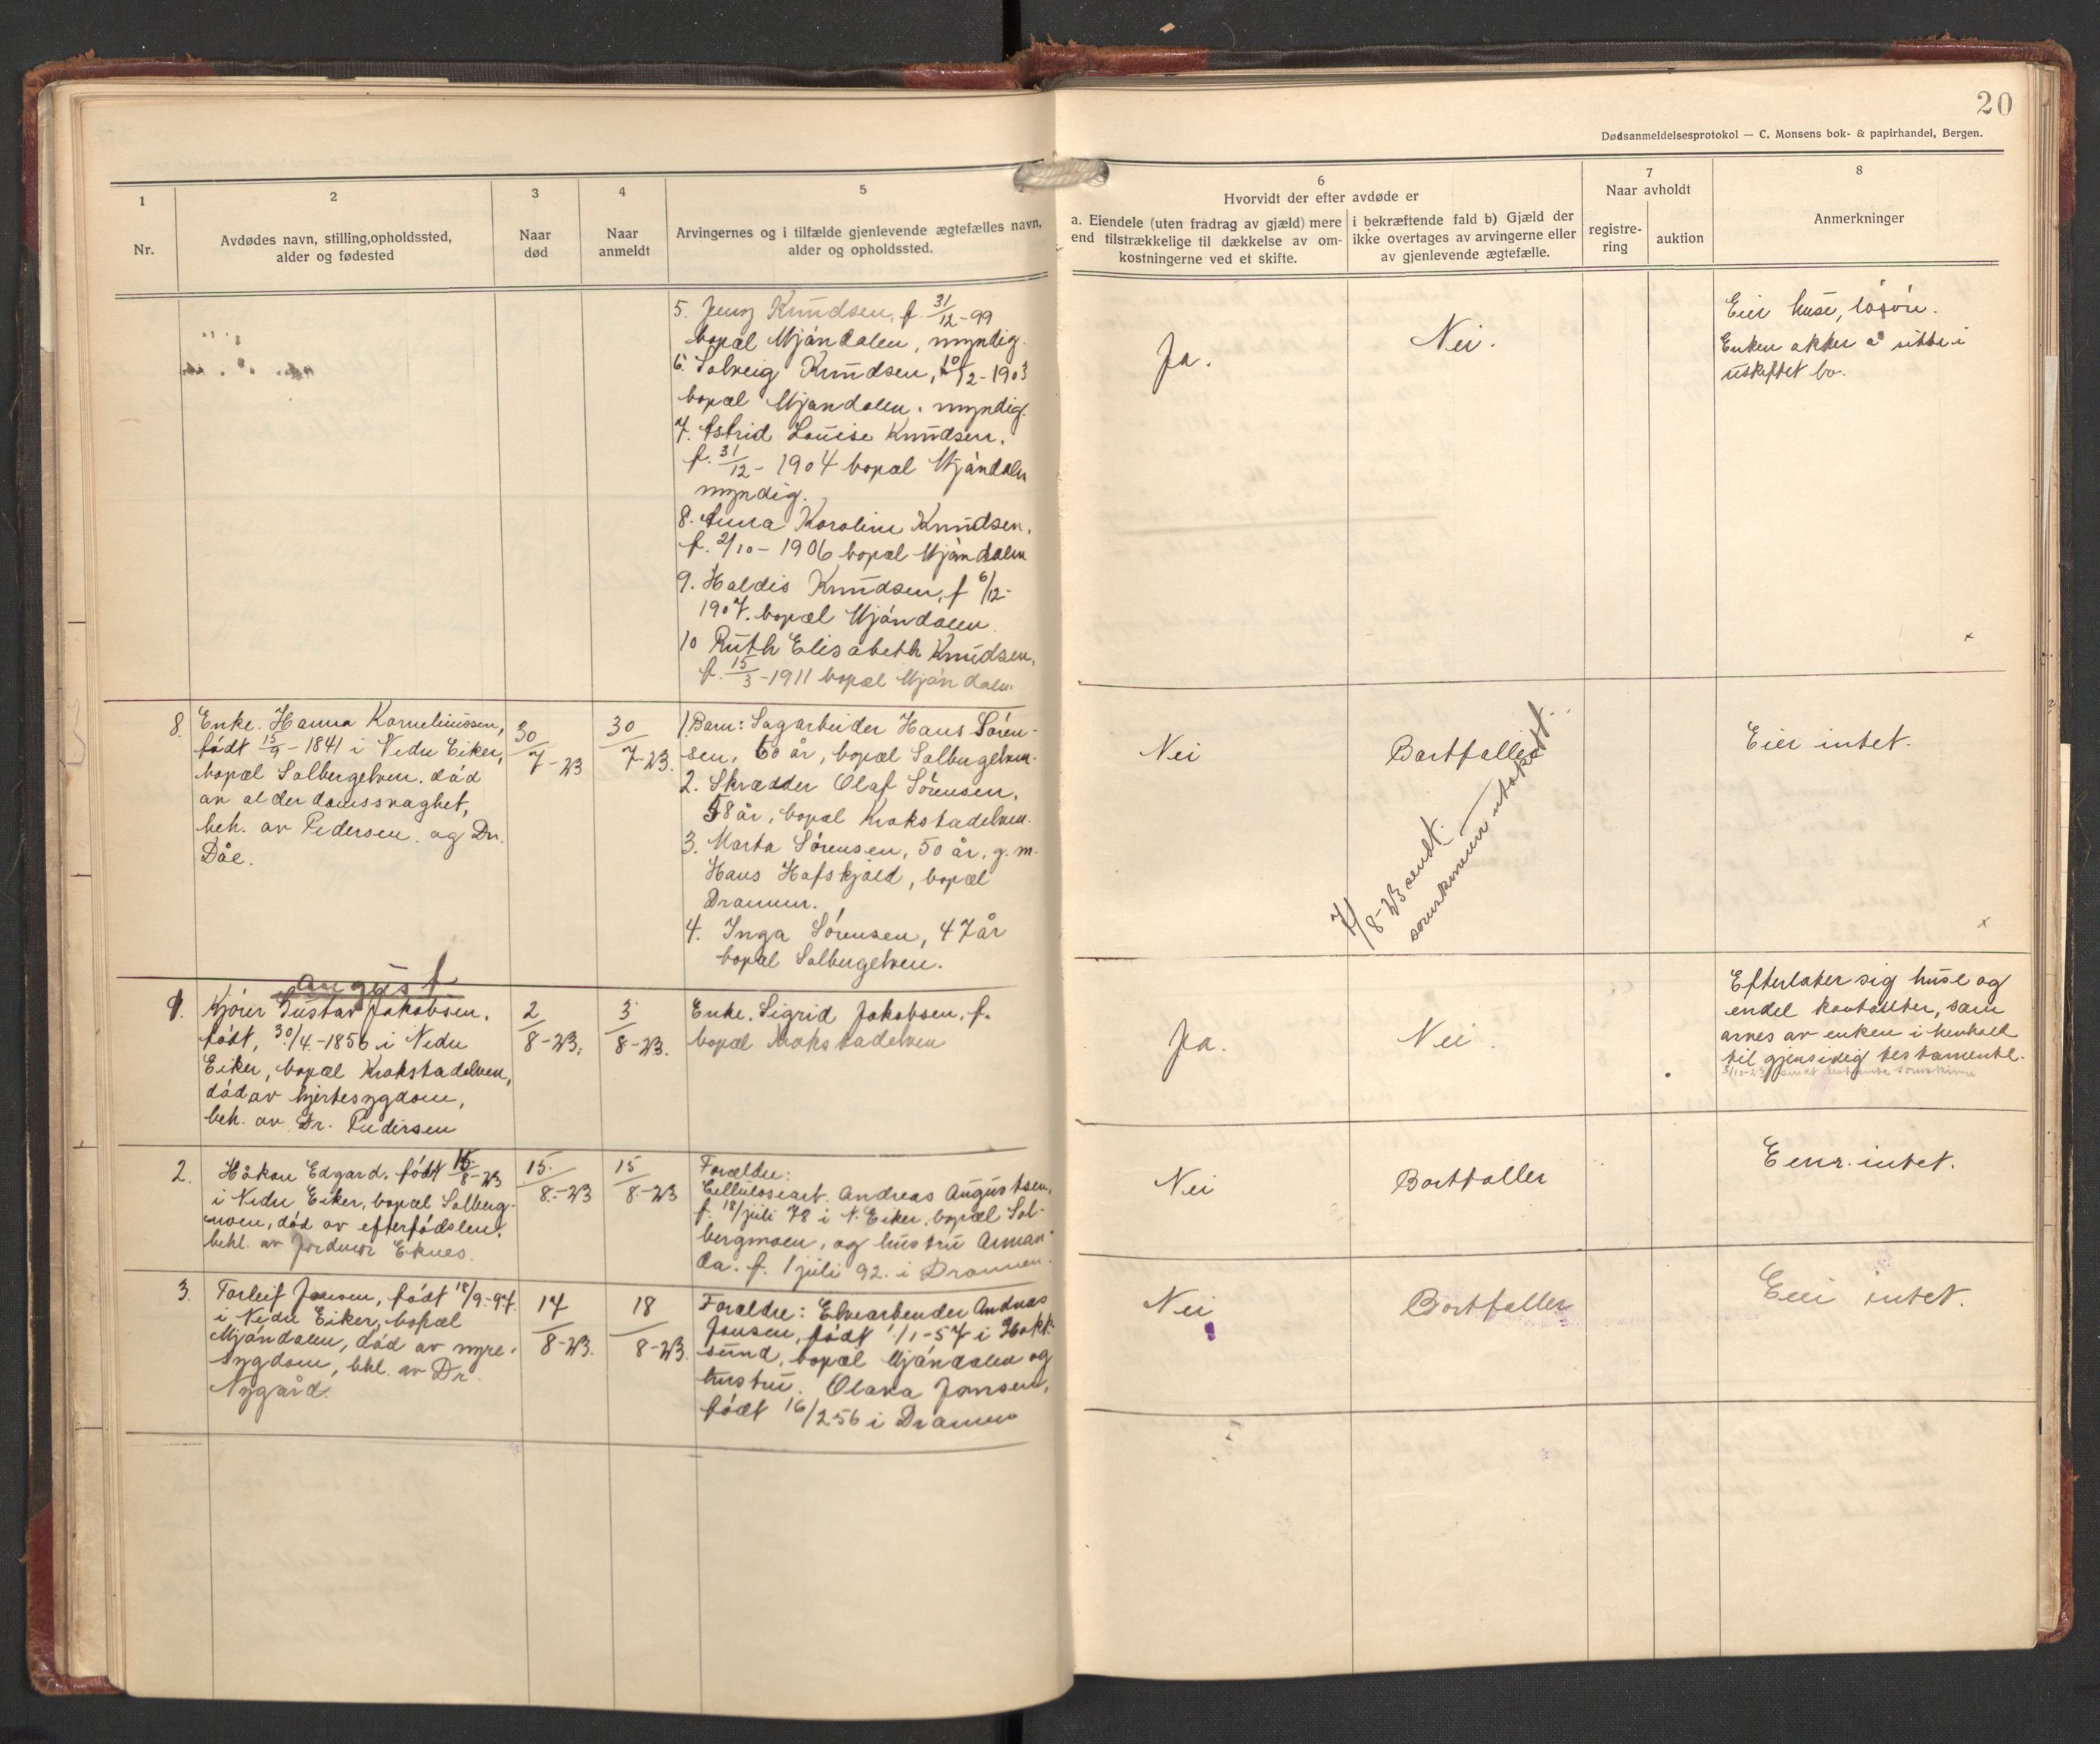 20
Dødsanmeldelsesprotokol — C. Monsens bok- & papirhandel, Bergen.
1
Nr.
2
Avdødes navn, stilling,opholdssted,
alder og fødested
3
Naar
død
4
Naar
anmeldt
5
Arvingernes og i tilfælde gjenlevende ægtefælles navn,
alder og opholdssted.
6
Hvorvidt der efter avdøde er
a. Eiendele (uten fradrag av gjæld) mere
end tilstrækkelige til dækkelse av om-
kostningerne ved et skifte.
i bekræftende fald b) Gjæld der
ikke overtages av arvingerne eller
av gjenlevende ægtefælle.
7
Naar avholdt
registre-
ring
auktion
8
Anmerkninger
5. Jenny Knudsen, f. 31/12-99
bopæl Mjøndalen, myndig.
6. Solveig Knudsen, 10/12-1903
bopæl Mjøndalen. myndig.
7. Astrid Louise Knudsen.
f. 31/12- 1904 bopæl Mjøndalen
myndig.
8. Anna Karoline Knudsen.
f. 2/10- 1906 bopæl Mjøndalen
9. Haldis Knudsen, f 6/12-
1907. bopæl Mjøndalen.
10 Ruth Elisabeth Knudsen,
f. 15/3-1911 bopæl Mjøndalen.
Ja.
Nei.
Eier huse, løsøre.
Enken akter å sitte i
uskiftet bo.
8.
Enke. Hanna Korneliussen,
født 15/9-1841 i Nedre Eiker,
bopæl Solbergelven. død
av alderdomssvaghet,
beh. av Pedersen og Dr.
Dåe.
30/7-23
30/7-23.
1. Barn: Sagarbeider Hans Sören-
sen, 60 år, bopæl Solbergelven.
2. Skrædder Olaf Sörensen,
58 år, bopæl Krokstadelven.
3. Marta Sörensen, 50 år, g. m.
Hans Hafskjold, bopæl
Drammen.
4. Inga Sörensen, 47 år
bopæl Solbergelven.
Nei
Bortfaller
7/8-23 sendt
sorenskriveren utskrift.
Eier intet.
August
1.
Kjører Gustav Jakobsen.
født, 30/4-1856 i Nedre
Eiker, bopæl Krokstadelven,
död av hjertesygdom,
beh. av Dr. Pedersen
2/8-23.
3/8-23.
Enke. Sigrid Jakobsen, f.
bopæl Krokstadelven
Ja.
Nei.
Efterlater sig huse og
endel kontanter, som
arves av enken i henhold
til gjensidig testamente.
2.
Håkon Edgard, født 15/8-23
i Nedre Eiker, bopæl Solberg-
moen, död av efterfödslen,
behl. av Jordmor Eknes.
15/8-23
15/8-23
Forældre:
Cellulosearb. Andreas Augustsen,
f. 18/juli 78 i N. Eiker, bopæl Sol-
bergmoen, og hustru Aman-
da. f. 1 juli 92. i Drammen.
Nei
Bortfaller
Eier intet.
3.
Torleif Jansen, født 18/9-97.
i Nedre Eiker, bopæl
Mjöndalen, död av nyre-
sygdom, bhl. av Dr.
Nygård.
17/8-23.
18/8-23.
Forældre: Elvearbeider Andreas
Jansen, födt 1/1-57 i Hokk-
sund, bopæl Mjöndalen og
hustru. Olava Jansen,
födt 16/2 56 i Drammen
Nei
Bortfaller
Eier intet.